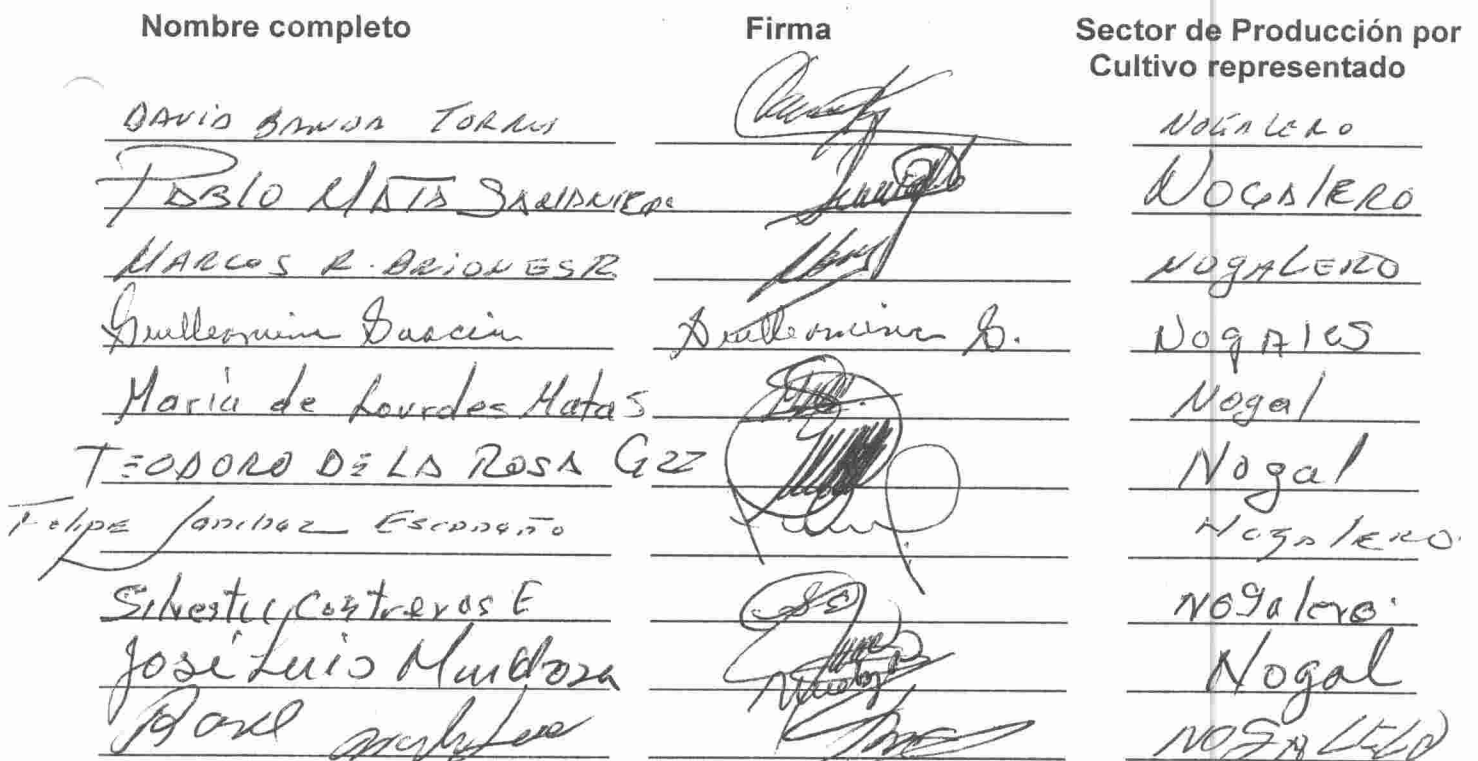 Nombre completo Firma Sector de Producción por
Cultivo representado
DAVID BANDA TORRES NOGALERO
PABLO MATA NOGALERO
MARCOS R. BRIONES R NOGALERO
Guillermina Guillermina G. Nogales
María de Lourdes Matas Nogal
TEODORO DE LA ROSA GZZ Nogal
Felipe Sanchez Nogalero.
Silvestre Contreras E Nogalero.
José Luis Mendoza Nogal
NOGALERO